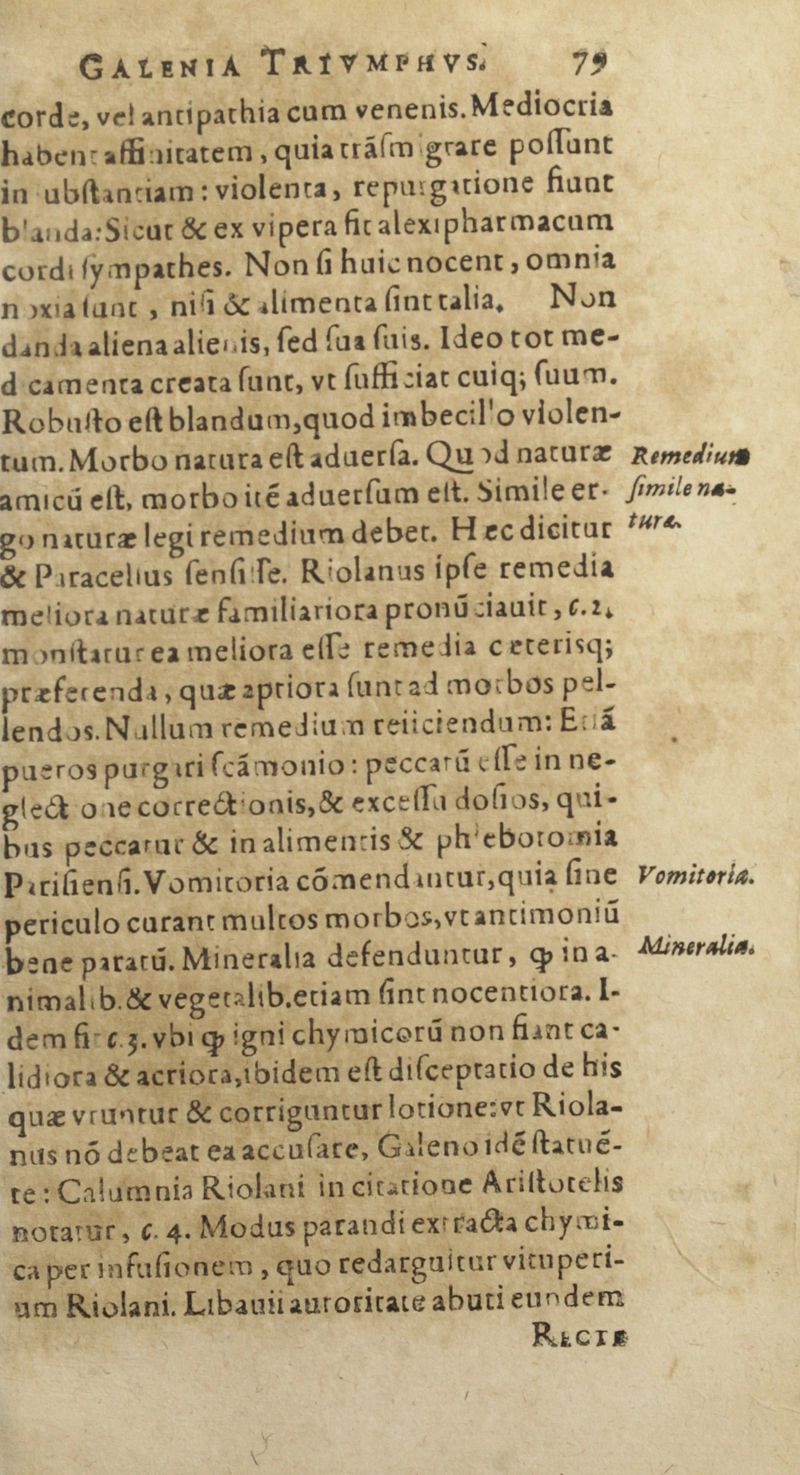 GALENIA TRIVMPHVS. 79
corde, vel antipathia cum venenis. Mediocria
habent affinitatem, quia trãſmigrare poſſunt
in ſubſtantiam: violenta, repurgatione fiunt
blanda: Sicut & ex vipera fit alexipharmacum
cordi ſympathes. Non ſi huic nocent, omnia
noxia ſunt, niſi & alimenta ſint talia. Non
danda aliena alienis, ſed ſua ſuis. Ideo tot me-
dicamenta creata ſunt, vt ſufficiat cuiq; ſuum.
Robuſto eſt blandum, quod imbecillo violen-
tum. Morbo natura eſt aduerſa. Quod naturæ
Remedium
amicũ eſt, morbo itẽ aduerſum eſt. Simile er-
ſimile na-
go naturæ legi remedium debet. Hæc dicitur
turæ.
& Paracelſus ſenſiſſe. Riolanus ipſe remedia
meliora naturæ familiariora pronũciauit, c. 2.
monſtratur ea meliora eſſe remedia cæterisq;
præferenda, quæ aptiora ſunt ad morbos pel-
lendos. Nullum remedium reiiciendum: Etiã
pueros purgari ſcãmonio: peccatũ eſſe in ne-
glectione correctionis, & exceſſu doſios, qui-
bus peccatur & in alimentis & phlebotomia
Pariſienſi. Vomitoria cõmendantur, quia ſine
Vomitoria.
periculo curant multos morbos, vt antimoniũ
bene paratũ. Mineralia defenduntur, ꝙ in a-
Mineralia.
nimalib. & vegetalib. etiam ſint nocentiora. I-
dem fit c. 3. vbi ꝙ igni chymicorũ non fiant ca-
lidiora & acriora, ibidem eſt diſceptatio de his
quæ vruntur & corriguntur lotione: vt Riola-
nus nõ debeat ea accuſare, Galeno idẽ ſtatuẽ-
te: Calumnia Riolani in citatione Ariſtotelis
notatur, c. 4. Modus parandi extracta chymi-
ca per infuſionem, quo redarguitur vituperi-
um Riolani. Libauii autoritate abuti eundem
RECTE